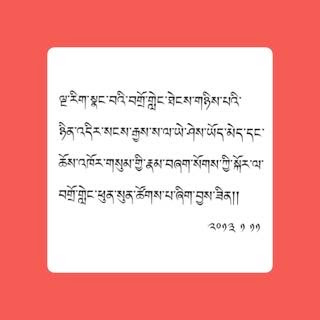 ལྔ་རིག་སྣང་བའི་བགྲོ་གླེང་ཐེངས་གཉིས་པའི་
ཉིན་འདིར་སངས་རྒྱས་ས་ལ་ཡེ་ཤེས་ཡོད་མེད་དང་
ཆོས་འཁོར་གསུམ་གྱི་རྣམ་བཞག་སོགས་ཀྱི་སྐོར་ལ་
བགྲོ་གླེང་ཕུན་སུན་ཚོགས་པ་ཞིག་བྱས་ཟིན།།
༢༠༡༣ ༡ ༡༡